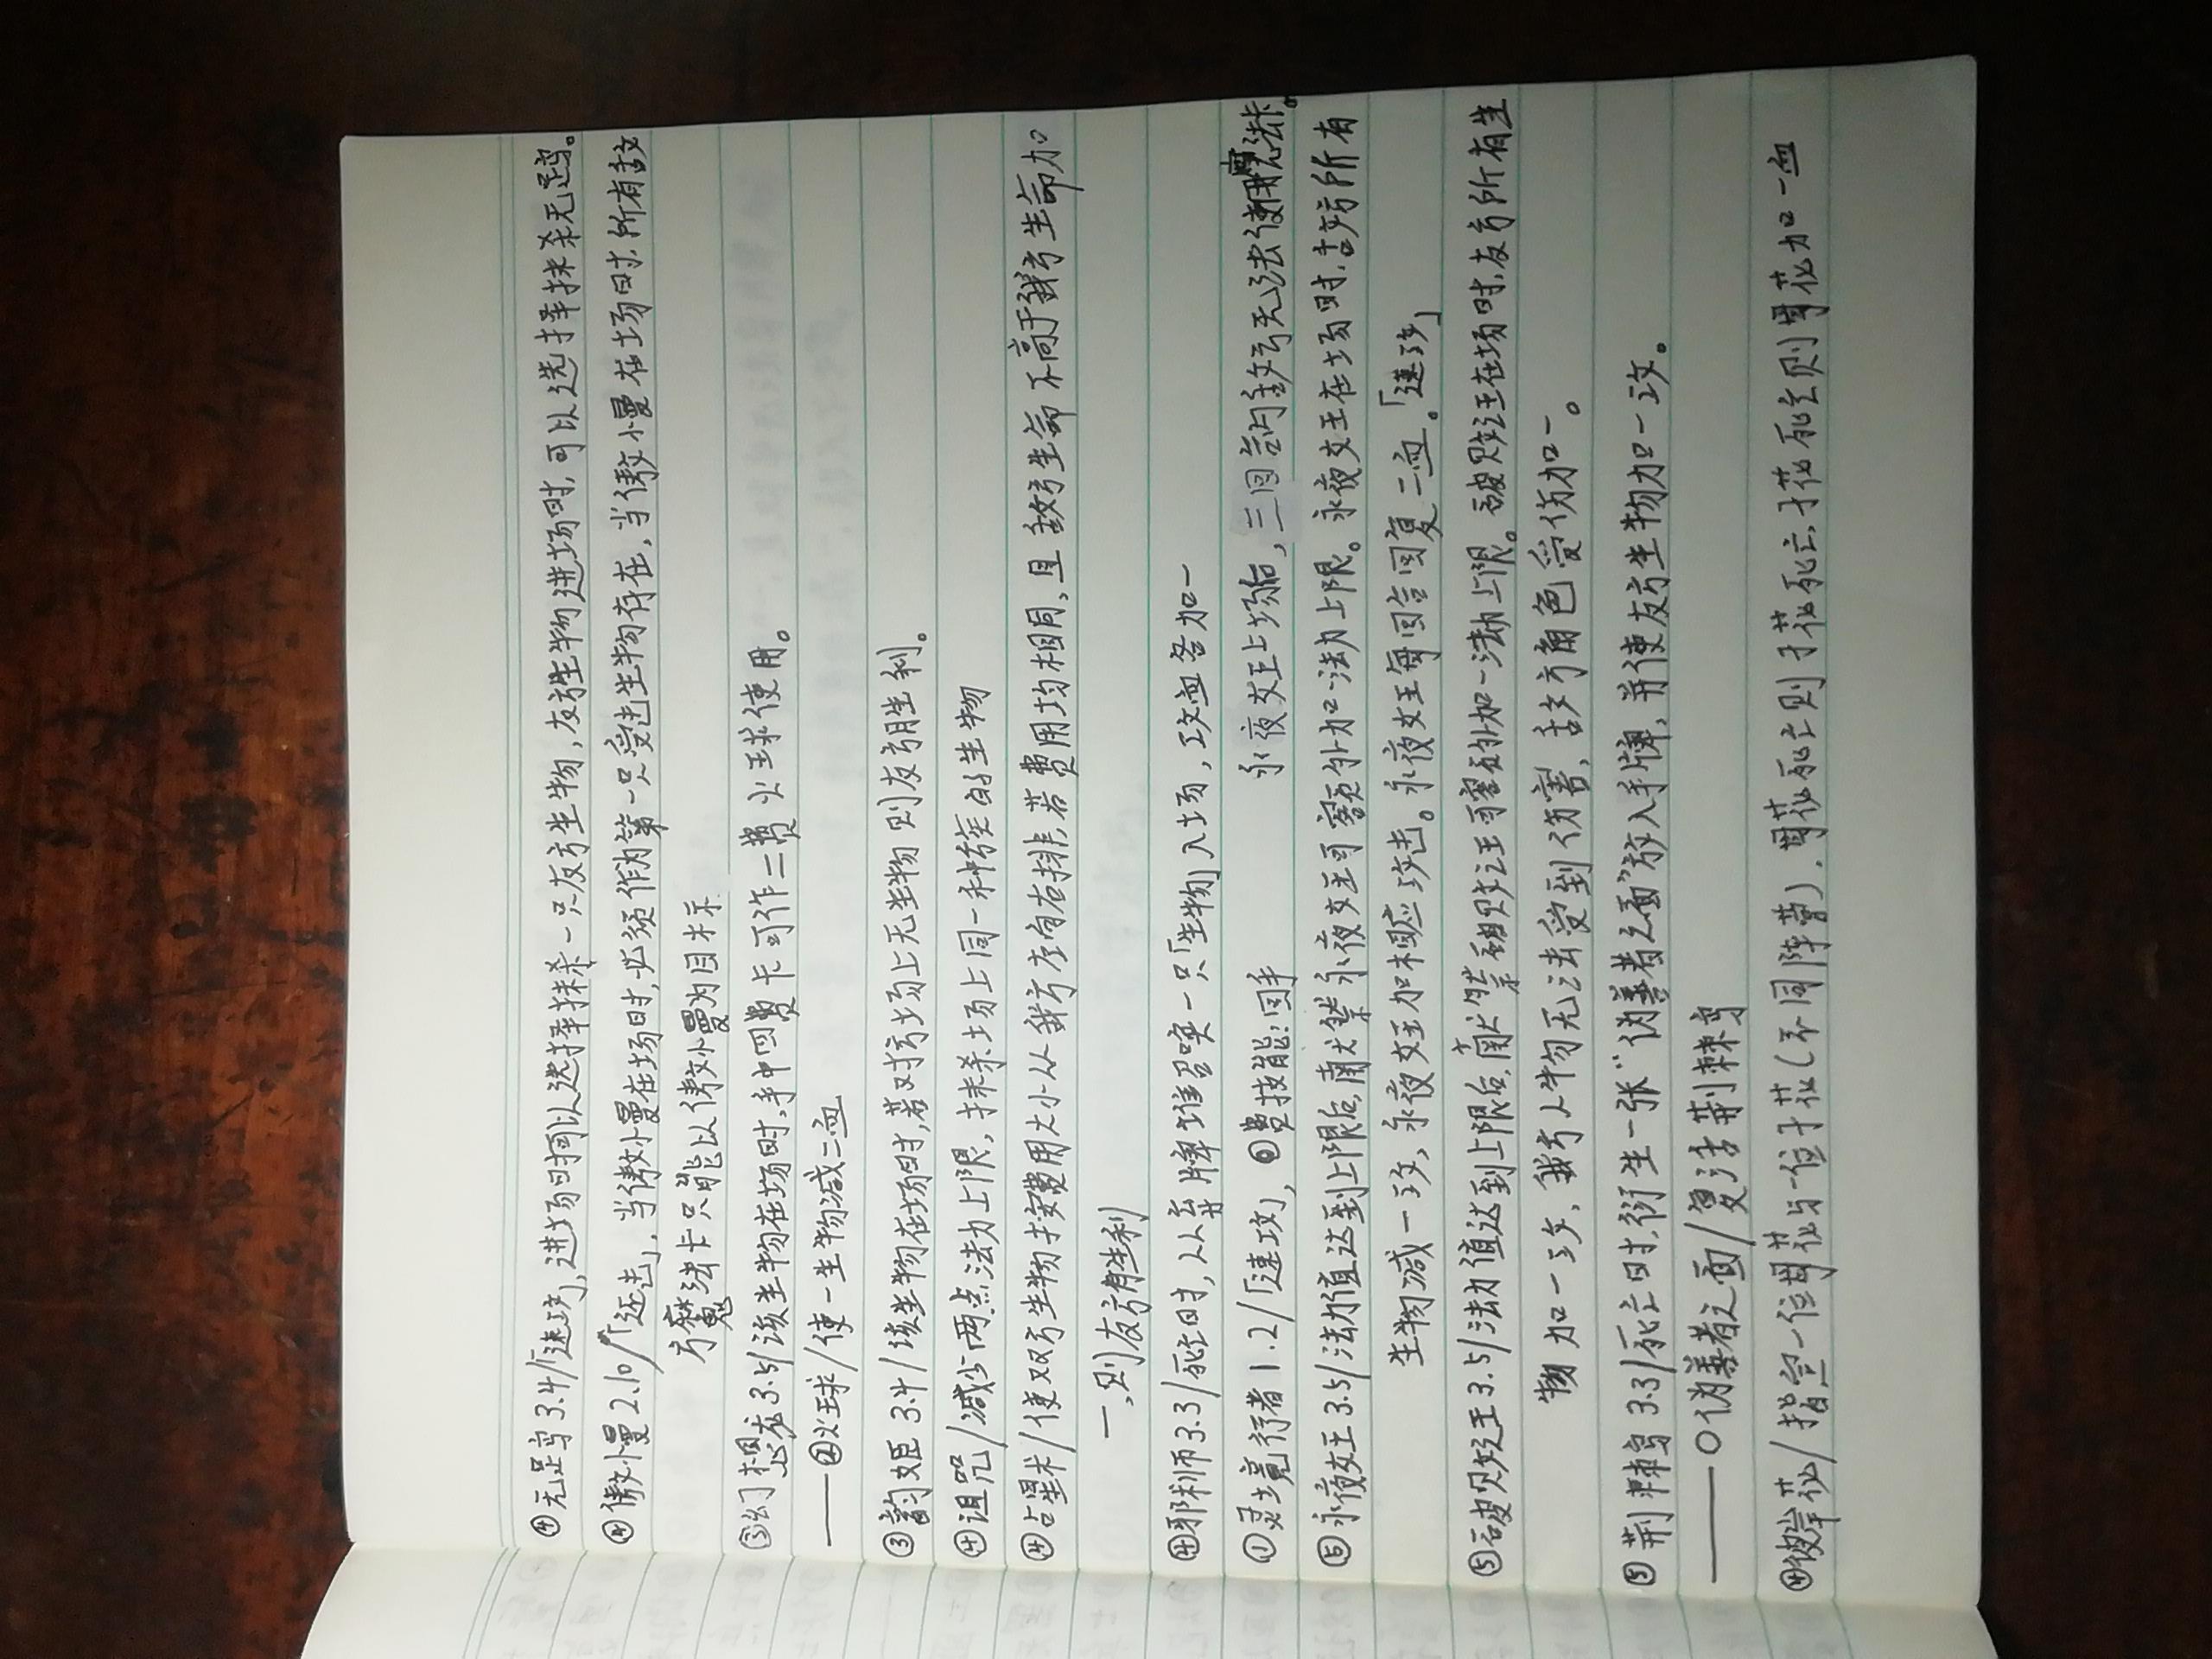 ④无足鸟3.4/「速攻」,进场时可以选择抹杀一只友方生物,友方生物进场时,可以选择抹杀无足鸟。
④傲小曼2.10/「还击」,当傲小曼在场时,必须作为第一只受击生物存在,当傲小曼在场时,所有敌
方魔法卡只能以傲小曼为目标
③幻想 3.5/该生物在场时,手中四费卡可作二费火球使用。
——②火球/使一生物减二血
③韵姬3.4/该生物在场时,若对方场上无生物则友方胜利。
④诅咒/减少两点法力上限,抹杀场上同一种族的生物
④占星术/使双方生物按费用大小从我方左向右排,若费用均相同,且敌方生命不高于我方生命加
一,则友方胜利
④耶利师3.3/死亡时,从弃牌堆召唤一只「生物」入场,攻血各加一
①灵境行者1.2/「速攻」,②费技能:回手 永夜女王上场后,三回合内敌方无法使用法卡。
⑥永夜女王3.5/法力值达到上限后,献祭永夜女王可额外加一法力上限。永夜女王在场时,敌方所有
生物减一攻,永夜女王加相应攻击。永夜女王每回合回复二血。「速攻」
⑤破败王3.5/法力值达到上限后,献祭破败王可额外加一法力上限。破败王在场时,友方所有生
物加一攻,我方人物无法受到伤害,敌方角色受伤加一。
⑤荆棘鸟3.3/死亡时,衍生一张“伪善者之面”放入手牌,并使友方生物加一攻。
——〇伪善者之面/复活荆棘鸟
④彼岸花/指定一位母花与一位子花(不同阵营),母花死亡则子花死亡,子花死亡则母花加一血